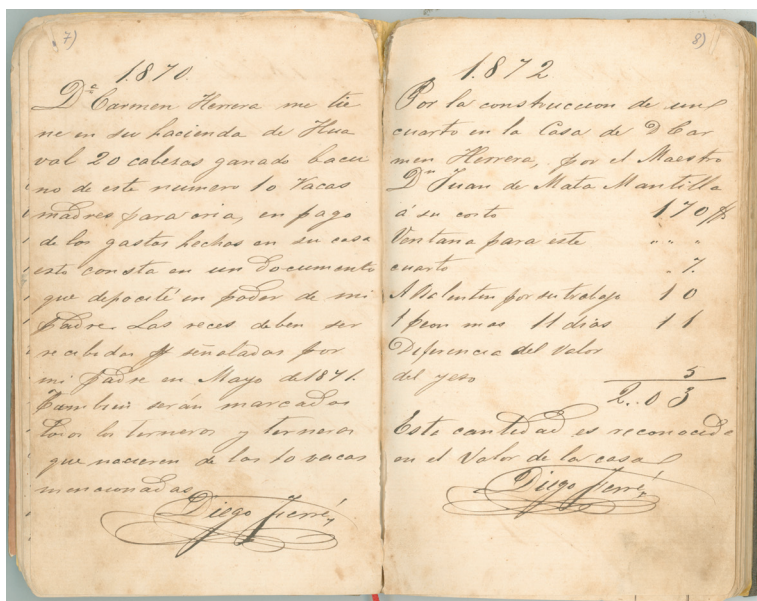 7)
1870.
Dª Carmen Herrera me tie
ne en su hacienda de Hua
val 20 cabesas ganado bacu
no de este numero 10 Vacas
madres para cria, en pago
de los gastos hechos en su casa
esto consta en un Documento
que deposité en poder de mi
Padre. Las reces deben ser
recibidas y señaladas por
mi Padre en Mayo de 1871.
Tambien serán marcados
todos los terneros y terneras
que nacieren de las 10 vacas
mencionadas
Diego Ferré
8)
1.872
Por la construccion de un
cuarto en la Casa de D Car
men Herrera, por el Maestro
Dn Juan de Mata Mantilla
á su costo 170
Ventana para este " " "
cuarto " 7.
A Valentin por su trabajo 10
1 peon mas 11 dias 11
Diferencia del Valor
del yeso 5
2..03
Esta cantidad es reconocida
en el Valor de la casa
Diego Ferré